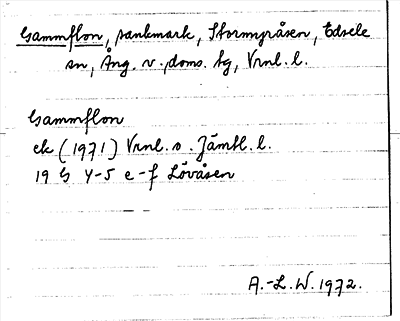 Gammflon, sankmark, Stormyråsen, Edsele
sn, Ång. v. doms. hg, Vrnl. l.
Gammflon
ek (1971) Vrnl. o. Jämtl. l.
19 G Y-5 e-f Lövåsen
A.-L. W. 1972.